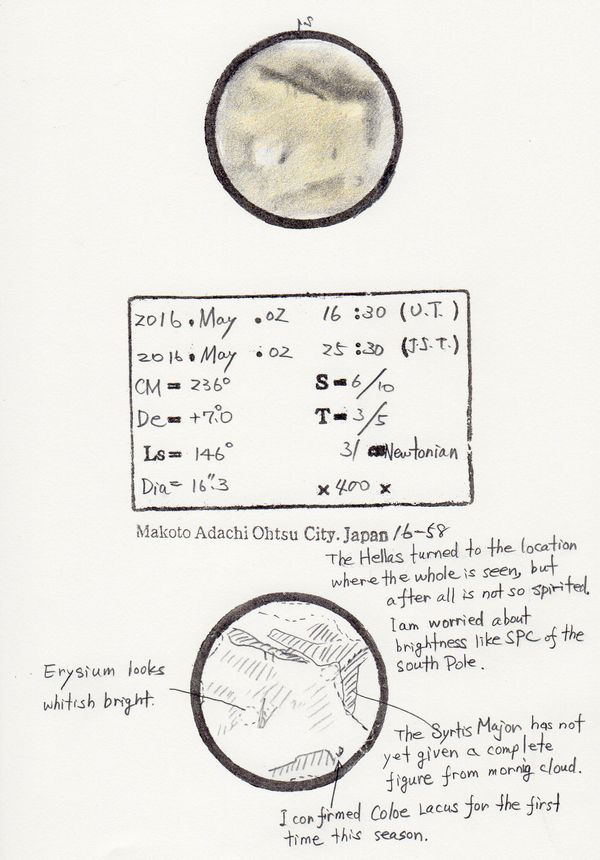 2016.May .02 16:30 (U.T.)
2016.May .02 25:30 (J.S.T.)
CM= 236° S=6/10
De= +7.°0 T=3/5
Ls= 146° 31 Newtonian
Dia= 16".3 × 400 ×
Makoto Adachi Ohtsu City. Japan 16-58
The Hellas turned to the location
where the whole is seen, but
after all is not so spirited.
I am worried about
brightness like SPC of the
south Pole.
Erysium looks
whitish bright.
The Syrtis Major has not
yet given a complete
figure from mornig cloud.
I confirmed Coloe Lacus for the first
time this season.